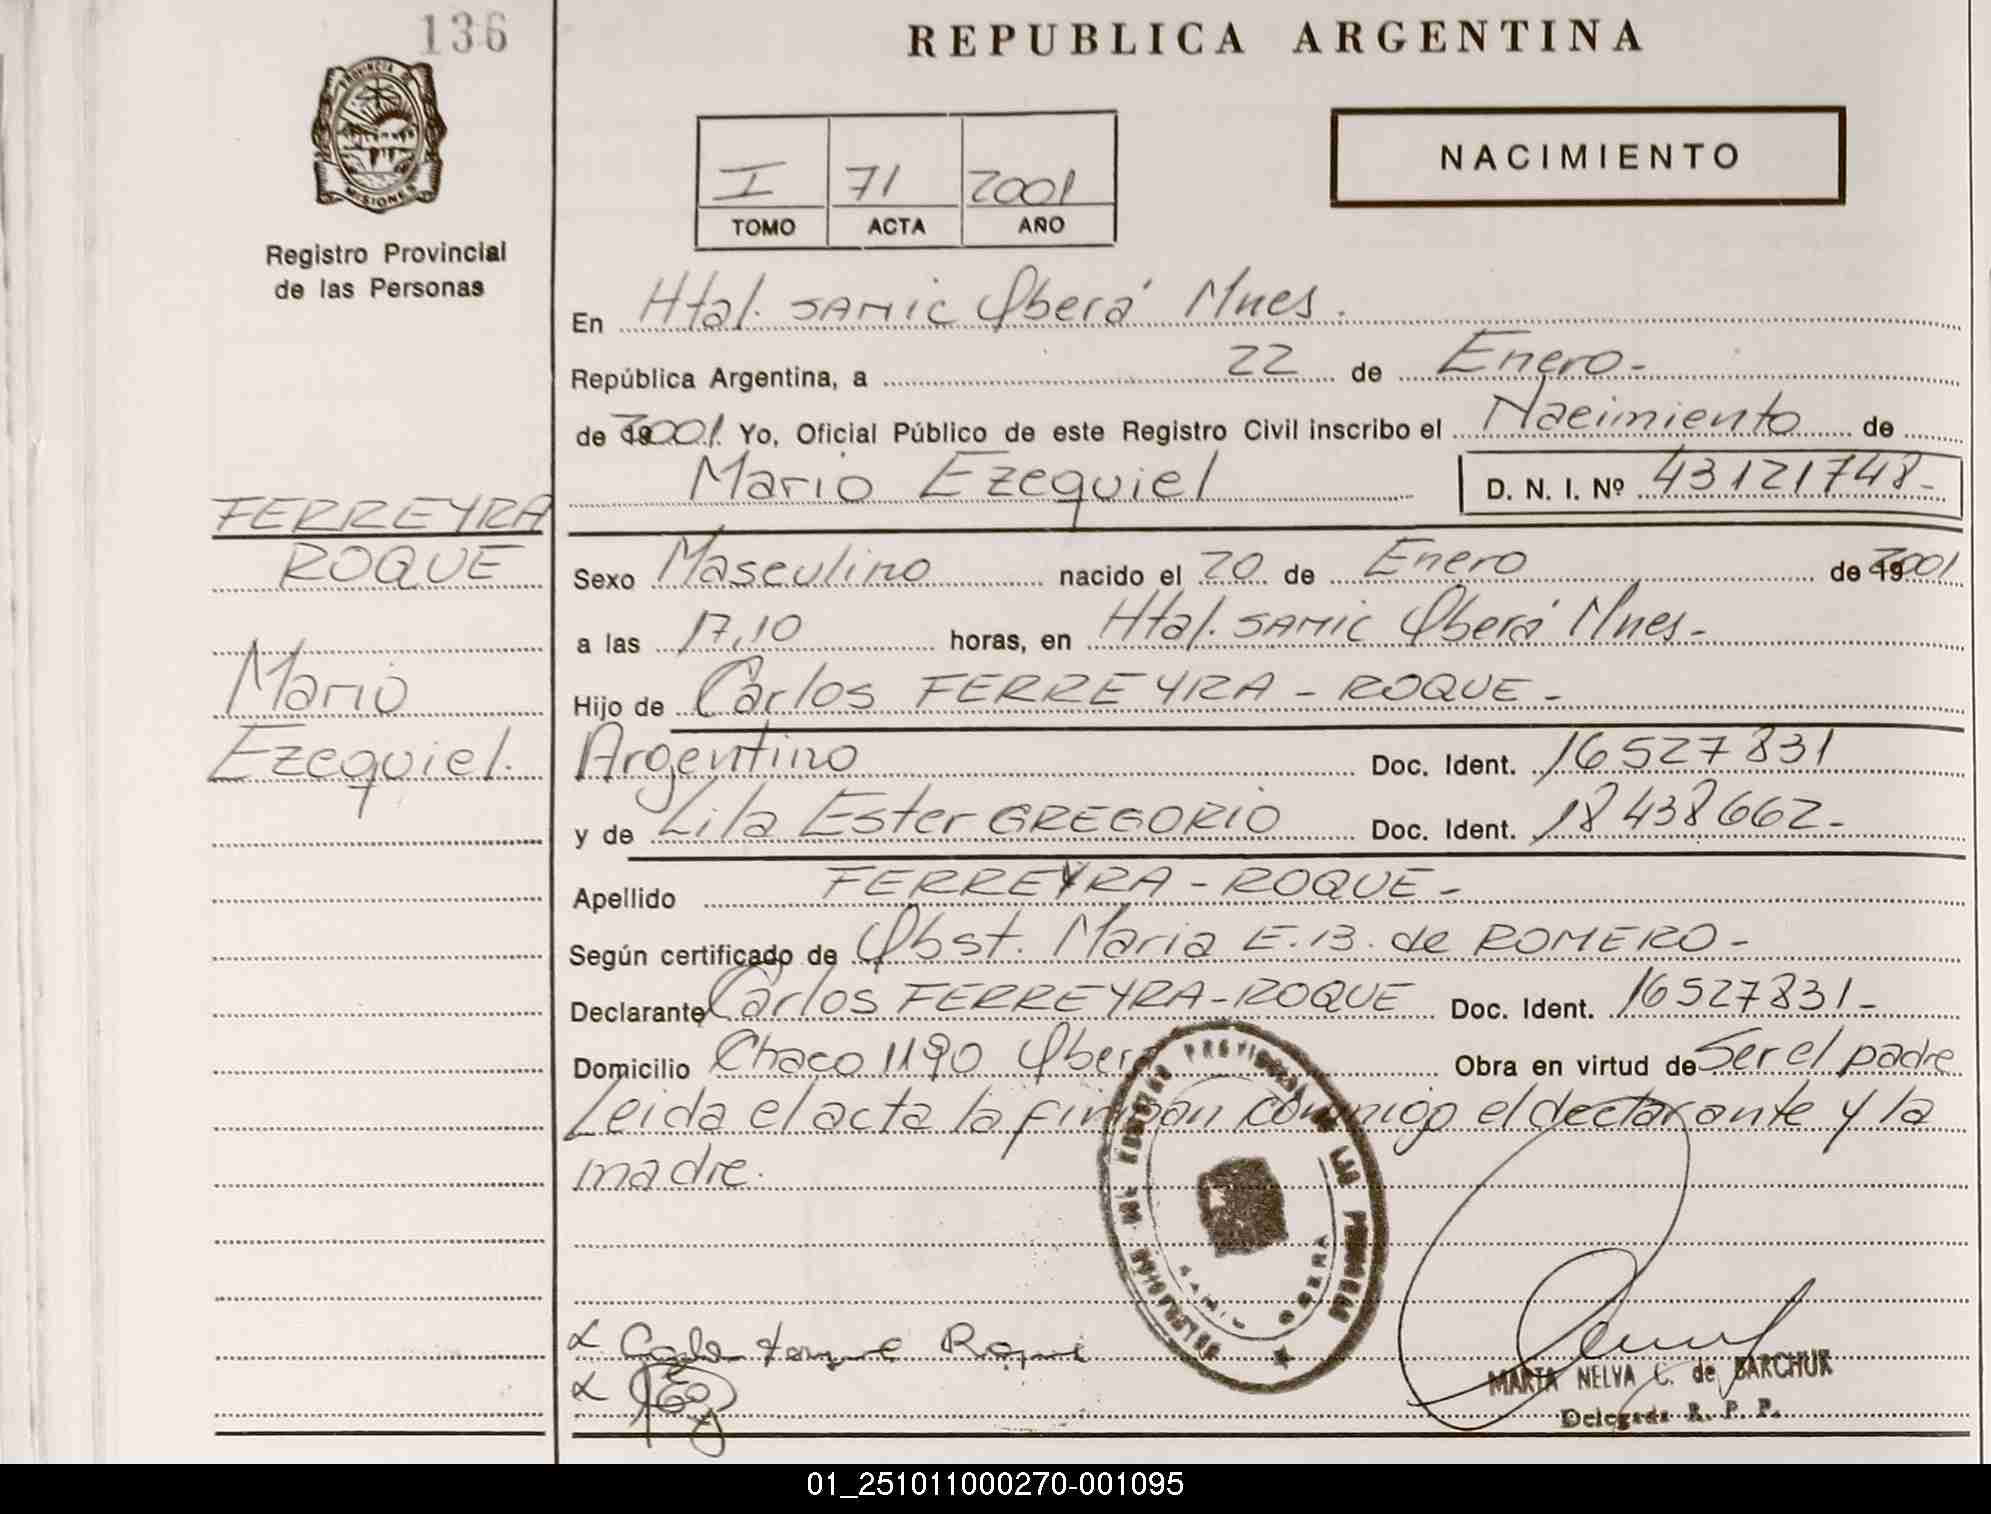 136
REPUBLICA ARGENTINA
PROVINCIA DE MISIONES
Registro Provincial
de las Personas
I 71 2001
TOMO ACTA AÑO
NACIMIENTO
En Htal. SAMIC Oberá Mnes.
República Argentina, a 22 de Enero.-
de 2001 Yo, Oficial Público de este Registro Civil inscribo el Nacimiento de
Mario Ezequiel D. N. I. Nº 43121748-
FERREYRA
ROQUE
Mario
Ezequiel.
Sexo Masculino nacido el 20 de Enero de 2001
a las 17,10 horas, en Htal. SAMIC Oberá Mnes.-
Hijo de Carlos FERREYRA - ROQUE -
Argentino Doc. Ident. 16527831
y de Lila Ester GREGORIO Doc. Ident. 18438662-
Apellido FERREYRA - ROQUE -
Según certificado de Obst. Maria E. B. de ROMERO -
Declarante Carlos FERREYRA-ROQUE Doc. Ident. 16527831-
Domicilio Chaco 1190 Oberá Obra en virtud de Ser el padre
Leida el acta la firman conmigo el declarante y la
madre.
PROVINCIAL DE LAS PERSONAS
OBERA
Roque
MARTA NELVA C. de BARCHUK
Delegada R. P. P.
01_251011000270-001095